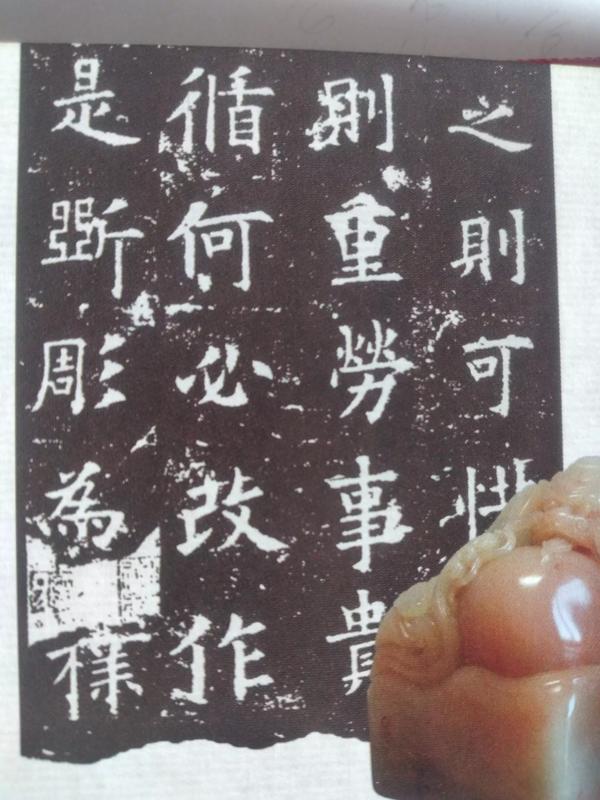 之則可惜
則重勞事貴
循何必改作
是斲彫為樸